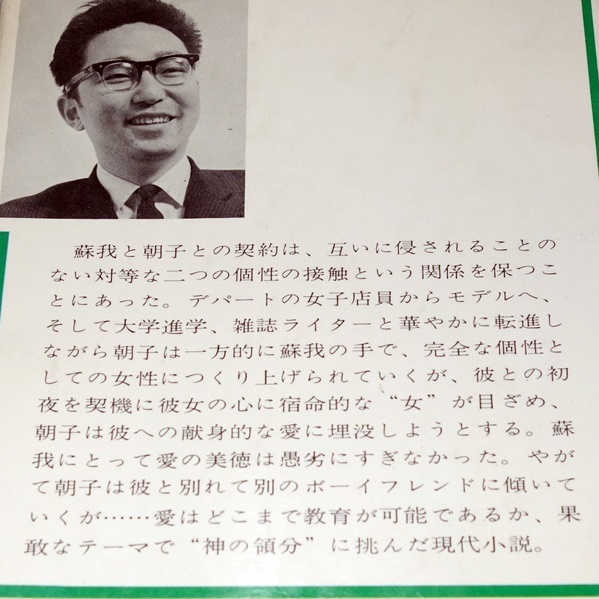 蘇我と朝子との契約は、互いに侵されることの
ない対等な二つの個性の接触という関係を保つこ
とにあった。デパートの女子店員からモデルへ、
そして大学進学、雑誌ライターと華やかに転進し
ながら朝子は一方的に蘇我の手で、完全な個性と
しての女性につくり上げられていくが、彼との初
夜を契機に彼女の心に宿命的な“女”が目ざめ、
朝子は彼への献身的な愛に埋没しようとする。蘇
我にとって愛の美徳は愚劣にすぎなかった。やが
て朝子は彼と別れて別のボーイフレンドに傾いて
いくが……愛はどこまで教育が可能であるか、果
敢なテーマで“神の領分”に挑んだ現代小説。